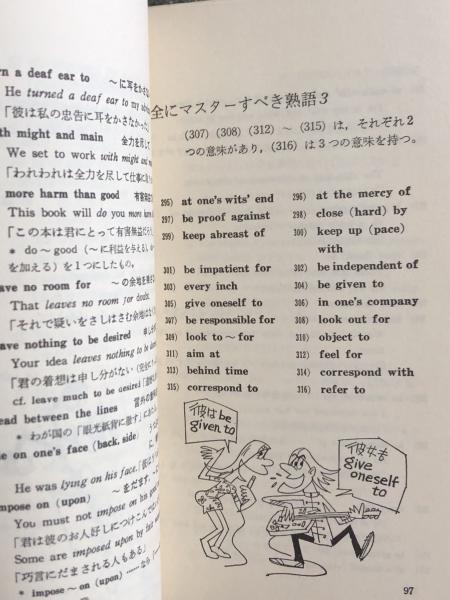 rn a deaf ear to　～に耳をかさな
He turned a deaf ear to my
「彼は私の忠告に耳をかさなかった
th might and main　全力を尽して
We set to work with might and
「われわれは全力を尽して仕事に
more harm than good　有害無
This book will do you more harm
「この本は君にとって有害無益だ
* do～good（～に利益を与える）
を加える）を1つにしたもの。
ave no room for　～の余地を
That leaves no room for doubt.
「それで疑いをさしはさむ余地は
ave nothing to be desired　申し分
Your idea leaves nothing to be
「君の着想は申し分がない
cf. leave much to be desired
ead between the lines　言外の
* わが国の「眼光紙背に徹す」に
e on one's face (back, side)
He was lying on his face.
mpose on (upon)　～をだます。
You must not impose on his
「君は彼のお人好しにつけこんで
Some are imposed upon by fair
「巧言にだまされる人もある」
* impose～on (upon) ……なら
全にマスターすべき熟語3
(307) (308) (312) ～ (315) は，それぞれ2
つの意味があり，(316) は3つの意味を持つ。
295) at one's wits' end　296) at the mercy of
297) be proof against　298) close (hard) by
299) keep abreast of　300) keep up (pace)
with
301) be impatient for　302) be independent of
303) every inch　304) be given to
305) give oneself to　306) in one's company
307) be responsible for　308) look out for
309) look to～for　310) object to
311) aim at　312) feel for
313) behind time　314) correspond with
315) correspond to　316) refer to
彼は be
given to
彼女も
give
oneself
to
97